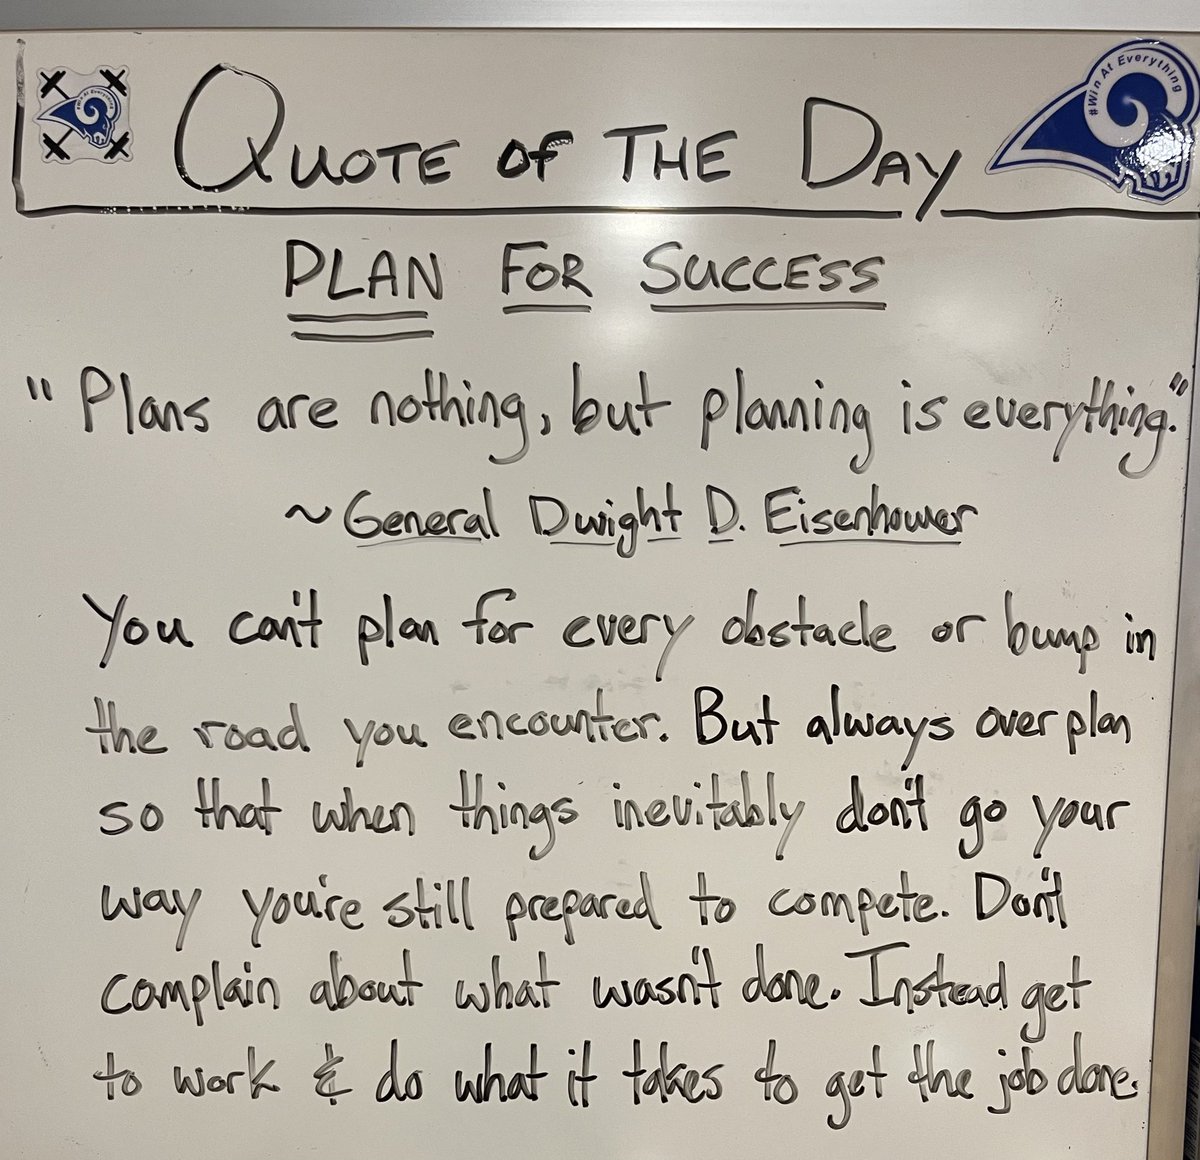 #Win At Everything
QUOTE of THE DAY
#Win At Everything
PLAN FOR SUCCESS
"Plans are nothing, but planning is everything."
~ General Dwight D. Eisenhower
You can't plan for every obstacle or bump in
the road you encounter. But always over plan
so that when things inevitably don't go your
way you're still prepared to compete. Don't
complain about what wasn't done. Instead get
to work & do what it takes to get the job done.